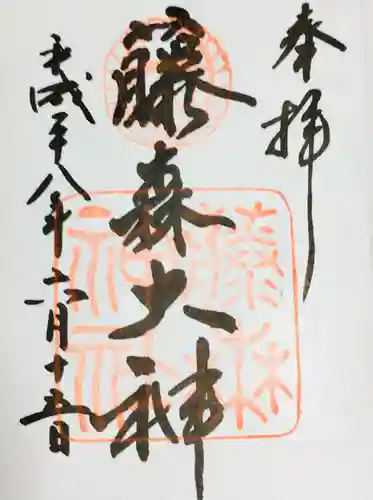 奉拝
藤森大神
平成二十八年六月十五日
藤森神社